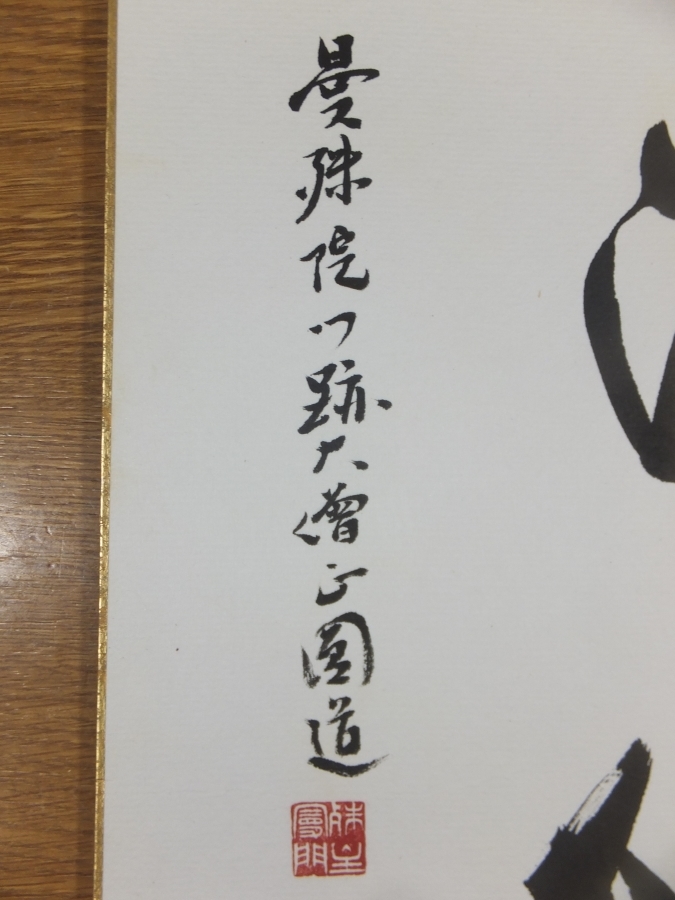 曼殊院門跡大僧正圓道